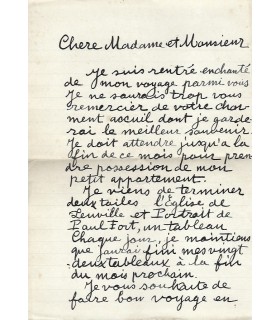 Chere Madame et Monsieur
Je suis rentré enchanté
de mon voyage parmi vous
Je ne saurais trop vous
remercier de votre char-
ment acceuil dont je garde-
rai le meilleur souvenir.
Je doit attendre jusqu'a la
fin de ce mois pour pren-
dre possession de mon
petit appartement.
Je viens de terminer
deux toiles l'Église de
et Portrait de
Paul Fort, un tableau
Chaque jour, je maintiens
que j'aurai fini mes vingt
deux tableaux à la fin
du mois prochain.
Je vous souhaite de
faire bon voyage en